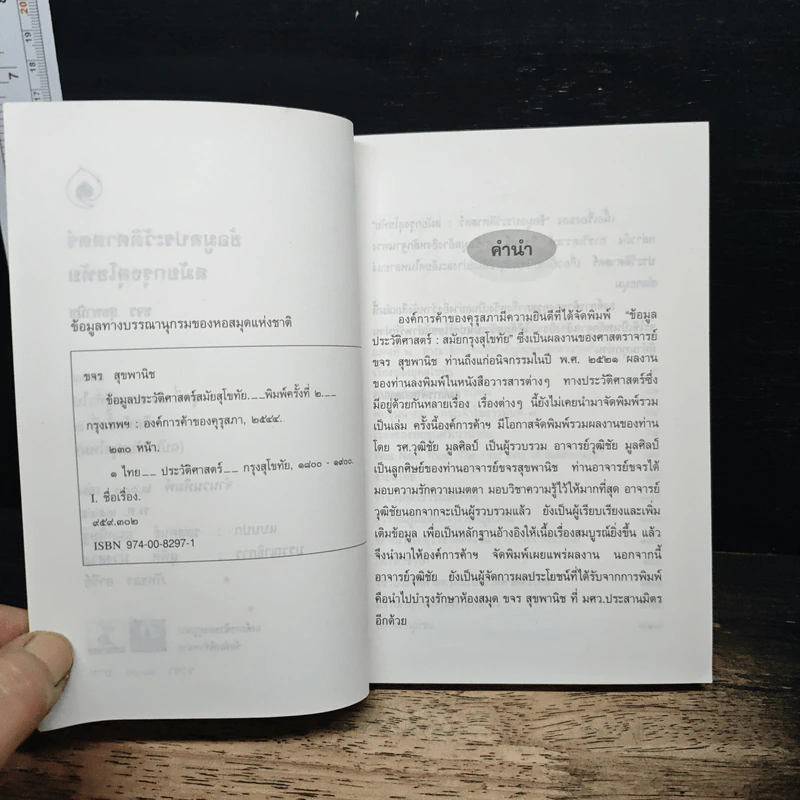 ข้อมูลทางบรรณานุกรมของหอสมุดแห่งชาติ
ขจร สุขพานิช
ข้อมูลประวัติศาสตร์สมัยสุโขทัย.__พิมพ์ครั้งที่ ๒.__
กรุงเทพฯ : องค์การค้าของคุรุสภา, ๒๕๔๔.
๒๓๐ หน้า.
๑ ไทย__ ประวัติศาสตร์__ กรุงสุโขทัย, ๑๘๐๐ - ๑๙๐๐.
I. ชื่อเรื่อง.
๙๕๙.๓๐๒
ISBN 974-00-8297-1
คำนำ
องค์การค้าของคุรุสภามีความยินดีที่ได้จัดพิมพ์ "ข้อมูล
ประวัติศาสตร์ : สมัยกรุงสุโขทัย" ซึ่งเป็นผลงานของศาสตราจารย์
ขจร สุขพานิช ท่านถึงแก่อนิจกรรมในปี พ.ศ. ๒๕๒๑ ผลงาน
ของท่านลงพิมพ์ในหนังสือวารสารต่างๆ ทางประวัติศาสตร์ซึ่ง
มีอยู่ด้วยกันหลายเรื่อง เรื่องต่างๆ นี้ยังไม่เคยนำมาจัดพิมพ์รวม
เป็นเล่ม ครั้งนี้องค์การค้าฯ มีโอกาสจัดพิมพ์รวมผลงานของท่าน
โดย รศ.วุฒิชัย มูลศิลป์ เป็นผู้รวบรวม อาจารย์วุฒิชัย มูลศิลป์
เป็นลูกศิษย์ของท่านอาจารย์ขจรสุขพานิช ท่านอาจารย์ขจรได้
มอบความรักความเมตตา มอบวิชาความรู้ไว้ให้มากที่สุด อาจารย์
วุฒิชัยนอกจากจะเป็นผู้รวบรวมแล้ว ยังเป็นผู้เรียบเรียงและเพิ่ม
เติมข้อมูล เพื่อเป็นหลักฐานอ้างอิงให้เนื้อเรื่องสมบูรณ์ยิ่งขึ้น แล้ว
จึงนำมาให้องค์การค้าฯ จัดพิมพ์เผยแพร่ผลงาน นอกจากนี้
อาจารย์วุฒิชัย ยังเป็นผู้จัดการผลประโยชน์ที่ได้รับจากการพิมพ์
คือนำไปบำรุงรักษาห้องสมุด ขจร สุขพานิช ที่ มศว.ประสานมิตร
อีกด้วย